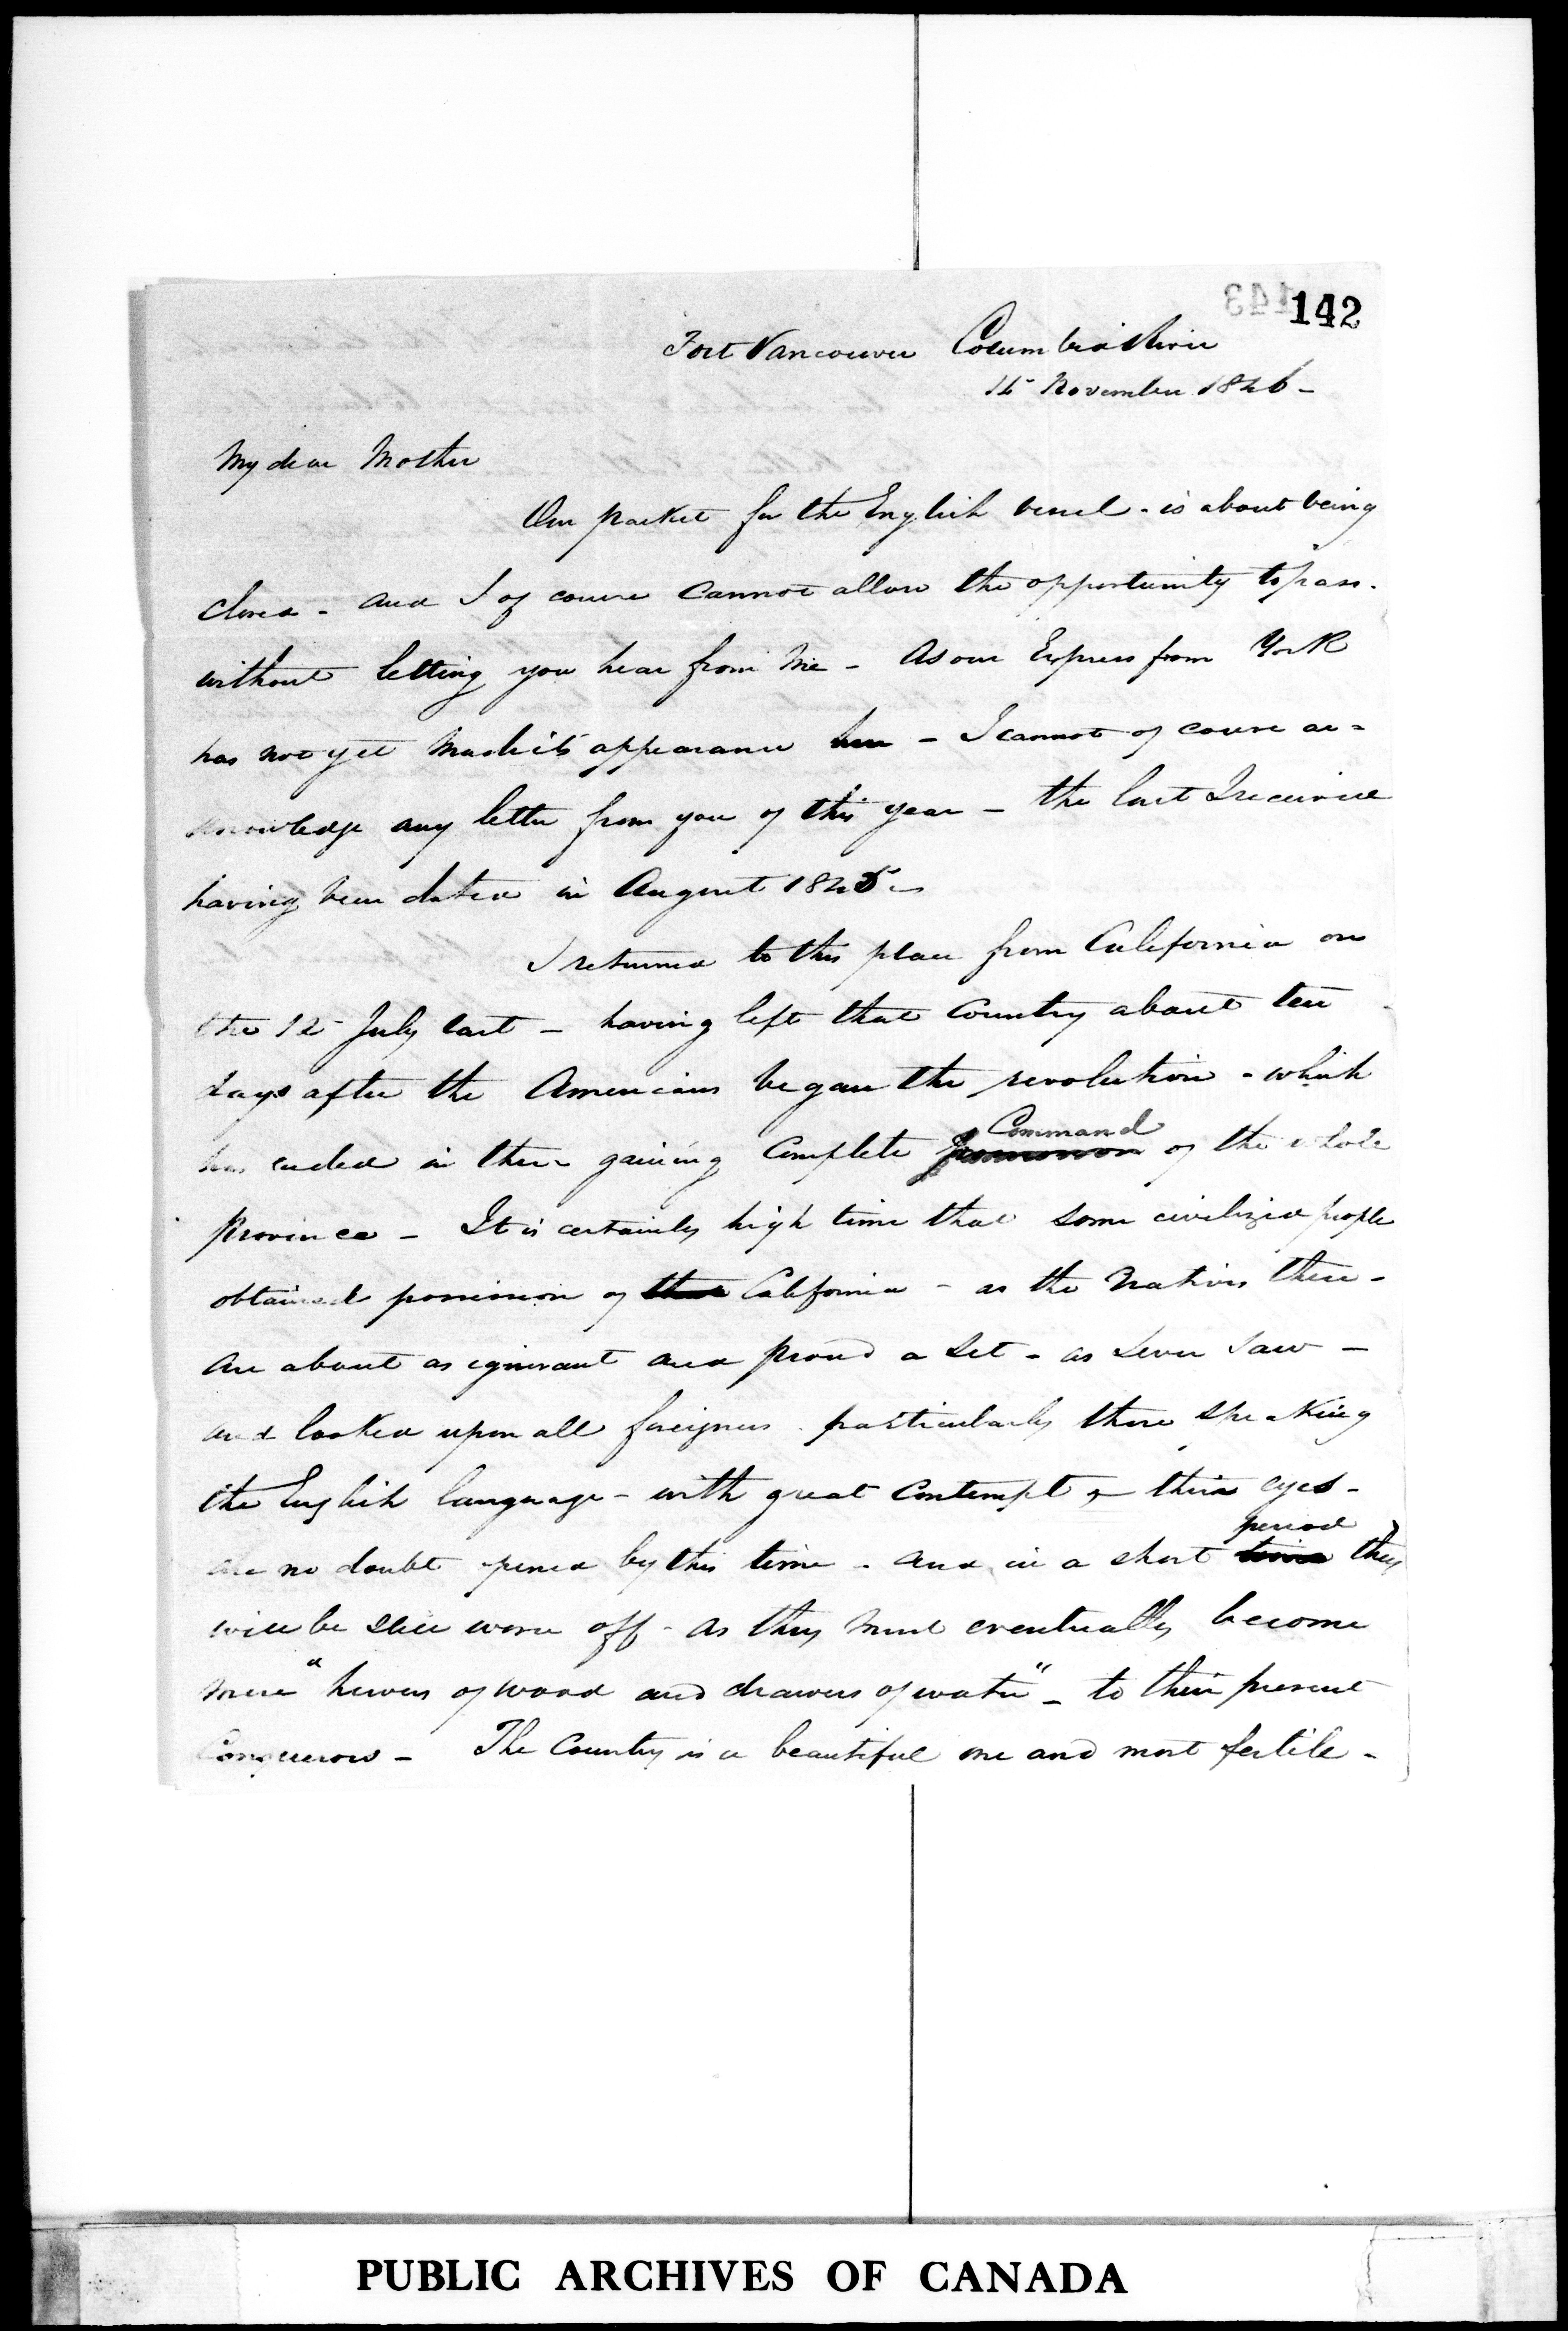 142
Fort Vancouver Columbia River
November 1846 -
My dear Mother
Our packet for the English vessel - is about being
closed - and I of course cannot allow the opportunity to pass -
without letting you hear from me - As our Express from York
has not yet made its appearance - I cannot of course ac=
knowledge any letter from you of this year - the last I received
having been dated in August 1845 -
I returned to this place from California on
the 12 July last - having left that Country about ten
days after the Americans began the revolution - which
has ended in their gaining Complete possession Command of the whole
Province - It is certainly high time that some civilized people
obtained possession of that California - as the Natives there -
are about as ignorant and proud a set - as I ever saw -
and looked upon all foreigners particularly those speaking
the English language - with great contempt - their eyes -
are no doubt opened by this time - and in a short time period they
will be still worse off - as they must eventually become
mere "hewers of wood and drawers of water" - to their present
Conquerors - The Country is a beautiful one and most fertile -
PUBLIC ARCHIVES OF CANADA